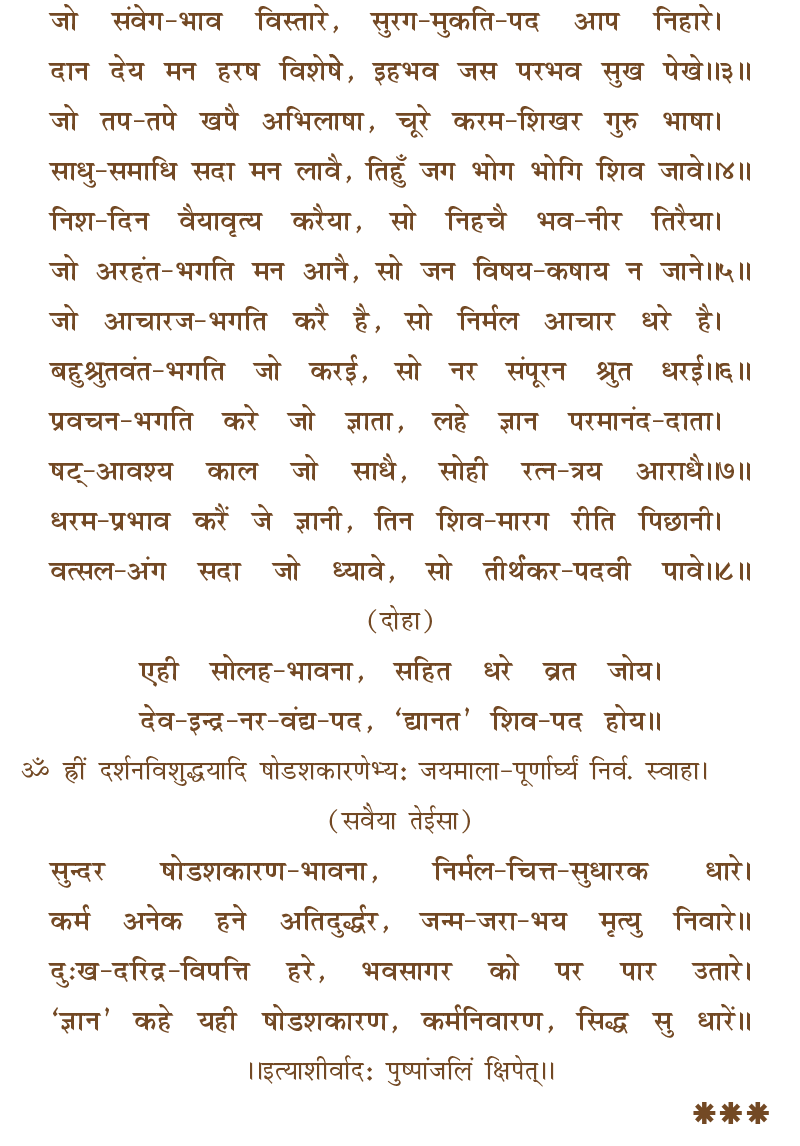 जो संवेग-भाव विस्तारे, सुरग-मुकति-पद आप निहारे।
दान देय मन हरष विशेषे, इहभव जस परभव सुख पेखे॥३॥
जो तप-तपे खपै अभिलाषा, चूरे करम-शिखर गुरु भाषा।
साधु-समाधि सदा मन लावै, तिहुँ जग भोग भोगि शिव जावे॥४॥
निश-दिन वैयावृत्य करैया, सो निहचै भव-नीर तिरैया।
जो अरहंत-भगति मन आनै, सो जन विषय-कषाय न जाने॥५॥
जो आचारज-भगति करै है, सो निर्मल आचार धरे है।
बहुश्रुतवंत-भगति जो करई, सो नर संपूरन श्रुत धरई॥६॥
प्रवचन-भगति करे जो ज्ञाता, लहे ज्ञान परमानंद-दाता।
षट्-आवश्य काल जो साधै, सोही रत्न-त्रय आराधै॥७॥
धरम-प्रभाव करैं जे ज्ञानी, तिन शिव-मारग रीति पिछानी।
वत्सल-अंग सदा जो ध्यावे, सो तीर्थंकर-पदवी पावे॥८॥
(दोहा)
एही सोलह-भावना, सहित धरे व्रत जोय।
देव-इन्द्र-नर-वंद्य-पद, ‘द्यानत’ शिव-पद होय॥
ॐ ह्रीं दर्शनविशुद्धयादि षोडशकारणेभ्य: जयमाला-पूर्णार्घ्यं निर्व. स्वाहा।
(सवैया तेईसा)
सुन्दर षोडशकारण-भावना, निर्मल-चित्त-सुधारक धारे।
कर्म अनेक हने अतिदुर्द्धर, जन्म-जरा-भय मृत्यु निवारे॥
दु:ख-दरिद्र-विपत्ति हरे, भवसागर को पर पार उतारे।
‘ज्ञान’ कहे यही षोडशकारण, कर्मनिवारण, सिद्ध सु धारें॥
।।इत्याशीर्वाद: पुष्पांजलिं क्षिपेत्।।
✱✱✱